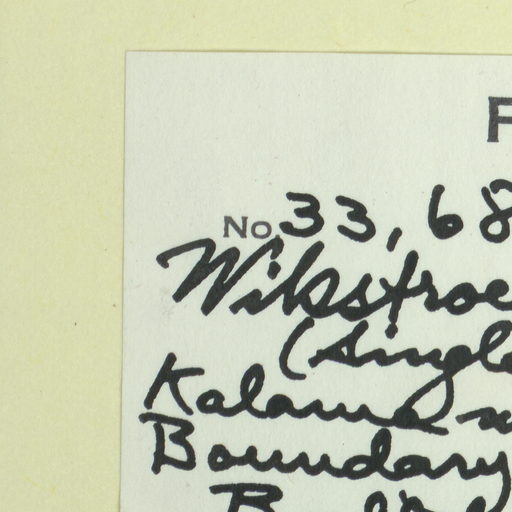 F
No. 33, 68
Wikstroe
(single
Kalama
Boundary